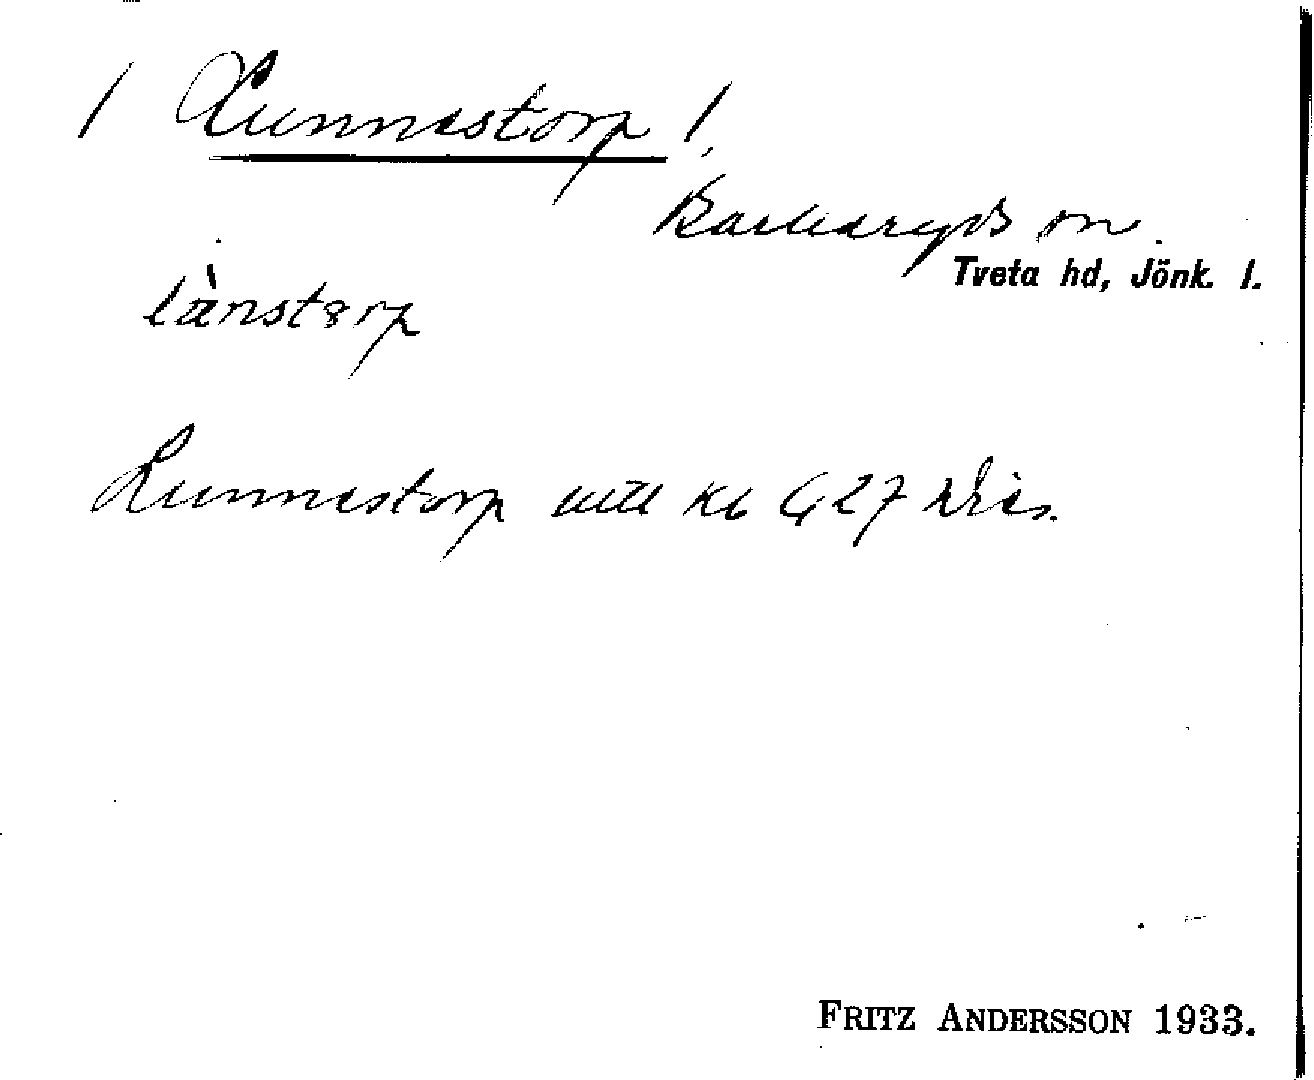 / Lunnestorp /.
Barkeryds sn.
Tveta hd, Jönk. l.
lànstɘrp
Lunnestorp uttl kb G 27
FRITZ ANDERSSON 1933.